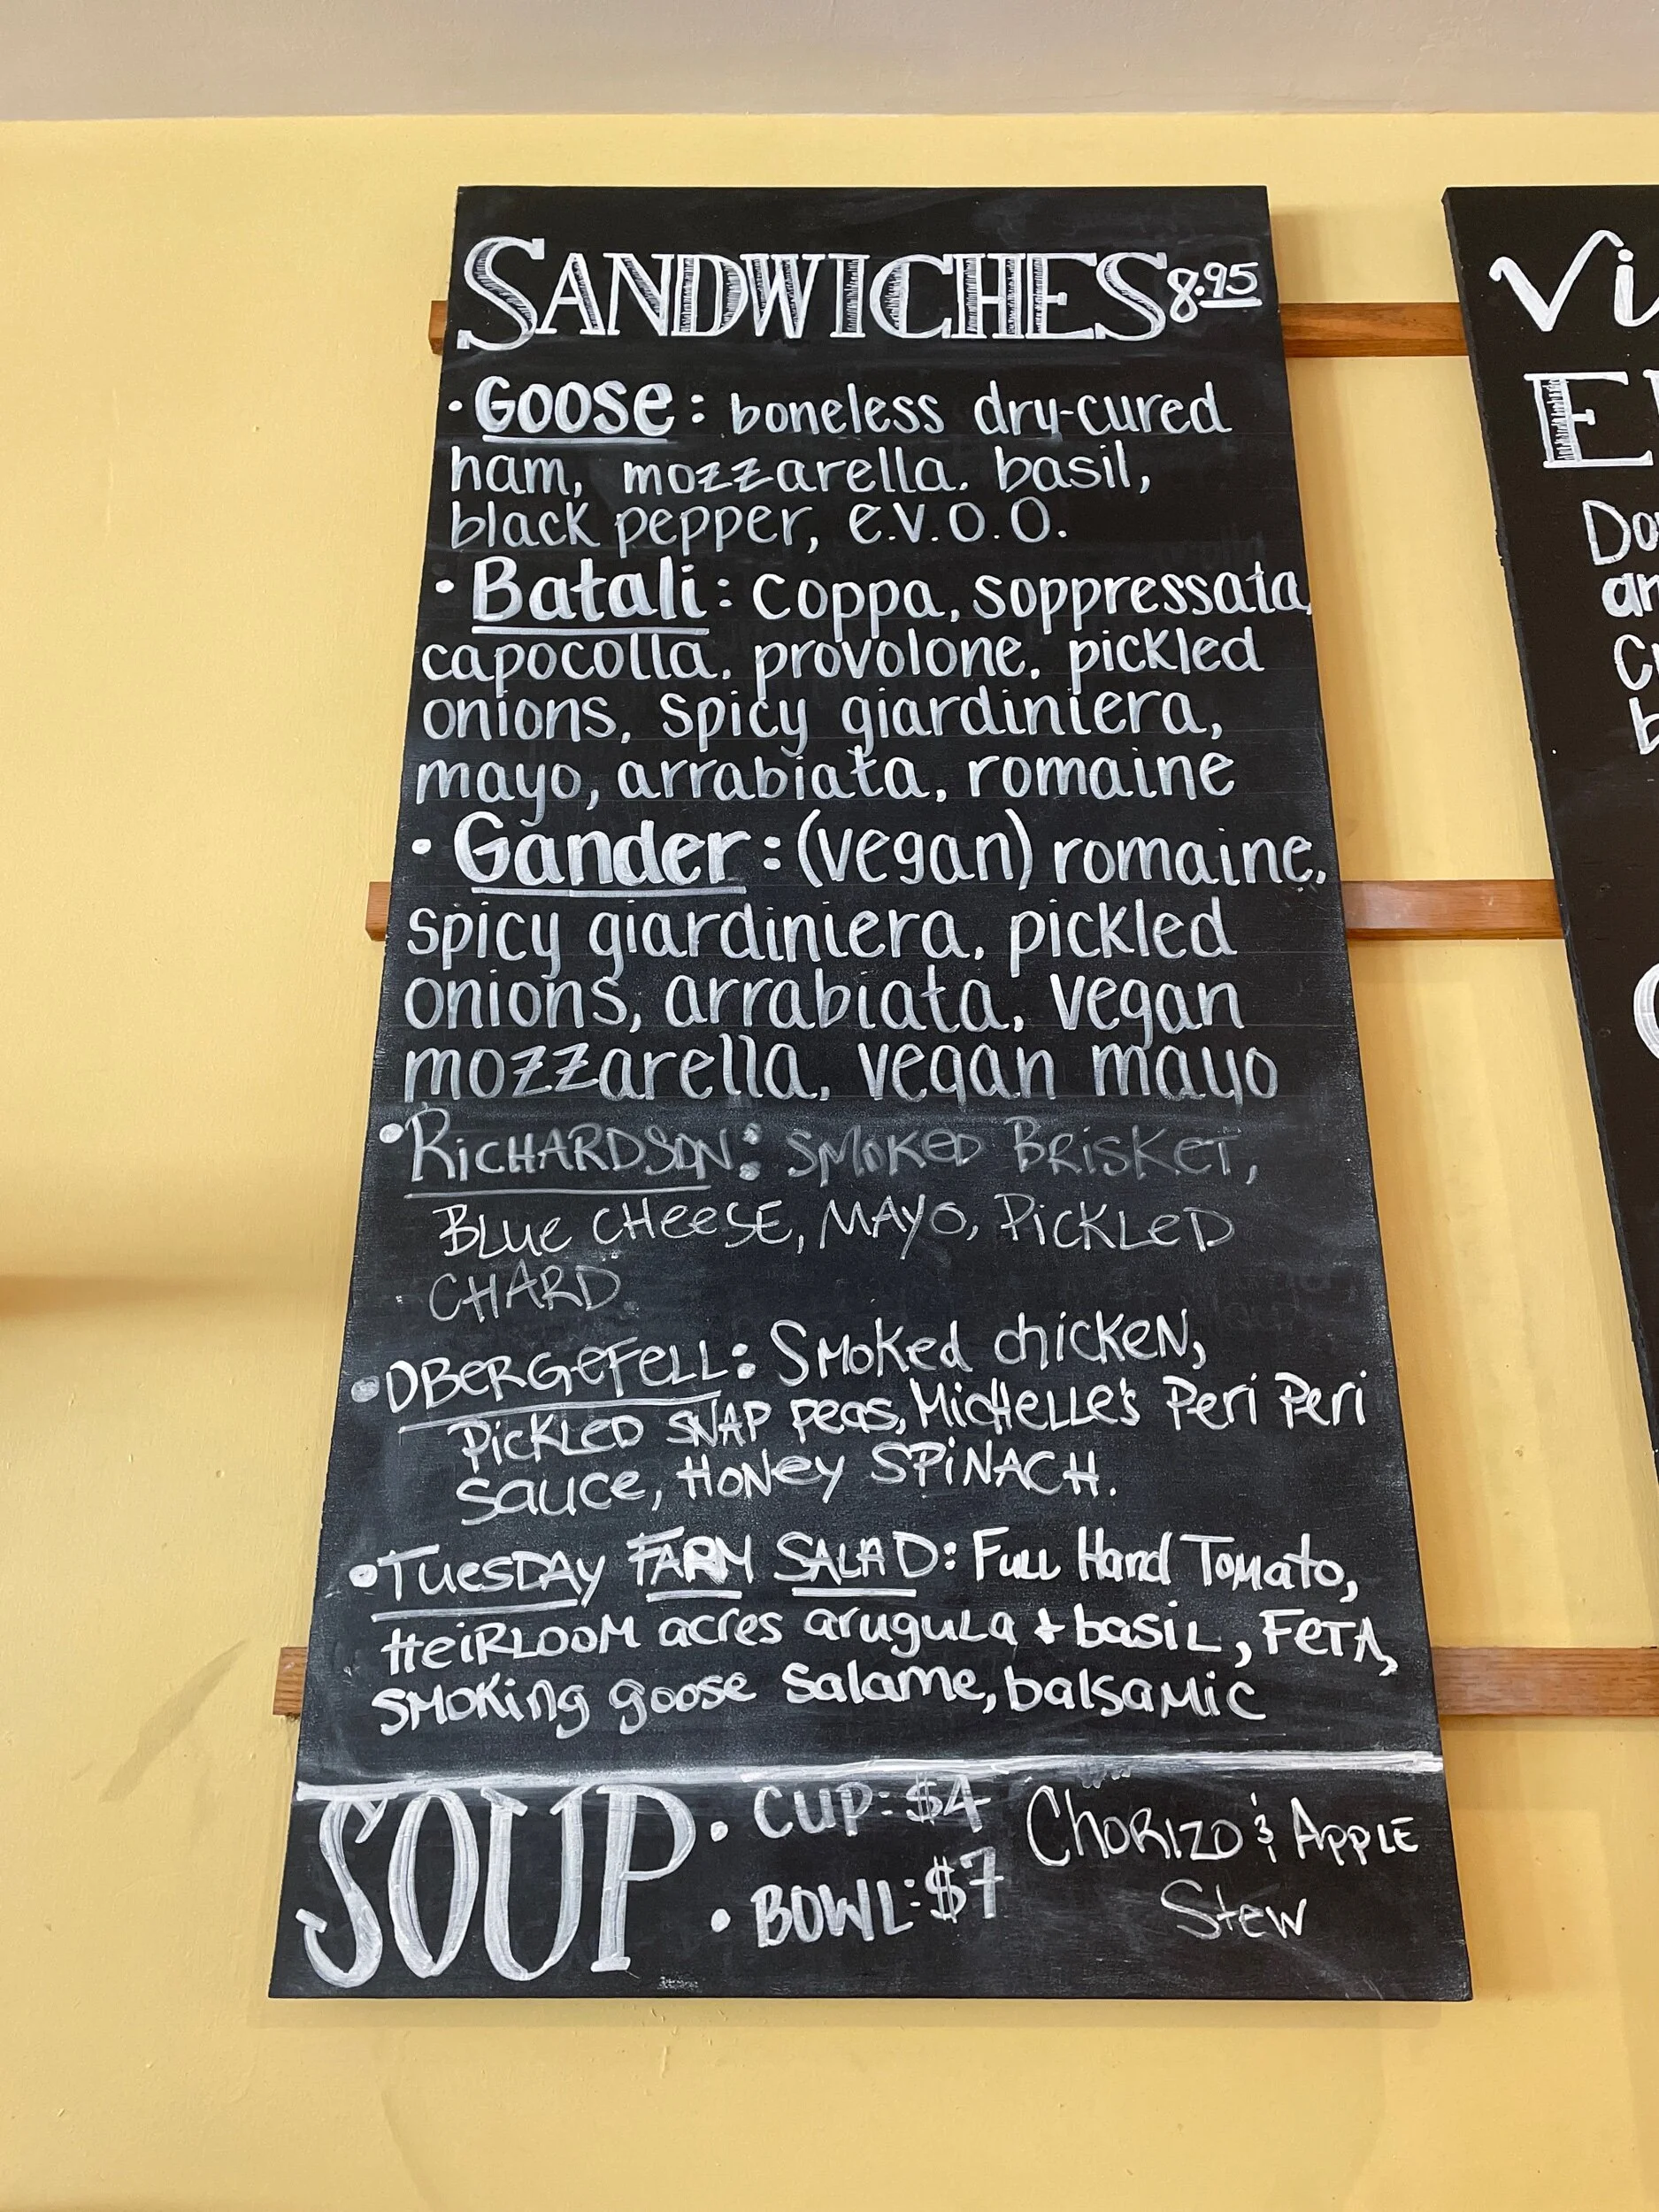 SANDWICHES 8.95
· Goose: boneless dry-cured
ham, mozzarella, basil,
black pepper, e.v.o.o.
· Batali: coppa, soppressata,
capocolla, provolone, pickled
onions, spicy giardiniera,
mayo, arrabiata, romaine
· Gander: (vegan) romaine,
spicy giardiniera, pickled
onions, arrabiata, vegan
mozzarella, vegan mayo
• RICHARDSON: SMOKED BRISKET,
BLUE CHEESE, MAYO, PICKLED
CHARD
• OBERGEFELL: Smoked chicken,
PICKLED SNAP peas, MICHELLE'S Peri Peri
sauce, HONey SPINACH.
• TUESDAY FARM SALAD: Full Hand Tomato,
HEIRLOOM acres arugula + basil, FETA,
smoking goose salame, balsamic
SOUP · CUP: $4 CHORIZO & APPLE
· BOWL: $7 Stew
Vi
E
Do
an
b